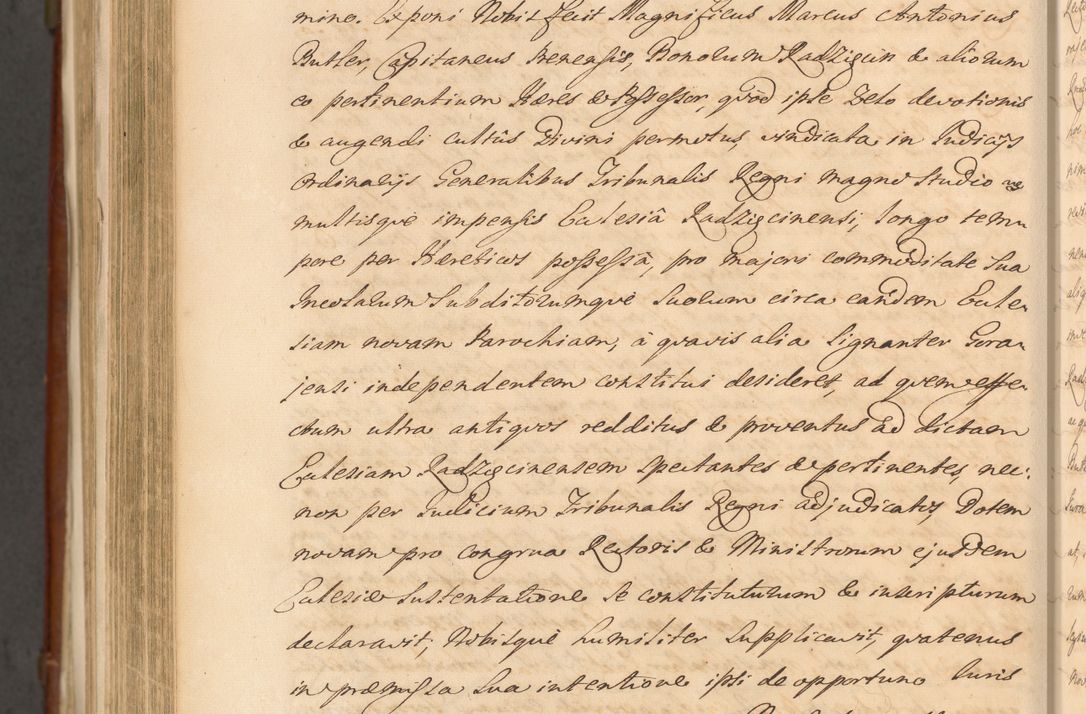 mine. Exponi Nobis fecit Magnificus Marcus Antonius
Butler, Capitaneus Prenensis, Bonorum Radzięcin & aliorum
eo pertinentium Hæres & Possessor, quòd ipse zelo devotionis
& augendi cultûs Divini permotus, vindicata in Iudicijs
Ordinarijs Generalibus Tribunalis Regni magno studio
multisque impensis Ecclesiâ Radzięcinensi, longo tem¬
pore per Hæreticos possessâ, pro majori commoditate sua
Incolarum Subditorumque suorum circa eandem Eccle¬
siam novam Parochiam, à quavis alia signanter Gora¬
jensi independentem constitui desideret, ad quem effe¬
ctum ultra antiquos redditus & proventus ad dictam
Ecclesiam Radzięcinensem spectantes & pertinentes, nec:
non per Iudicium Tribunalis Regni adjudicatos, Dotem
novam pro congrua Rectoris & Ministrorum ejusdem
Ecclesiæ sustentatione se constituturum & inscripturum
declaravit, Nobisque humiliter supplicavit, quatenus
in præmissa sua intentione ipsi de opportuno Iuris